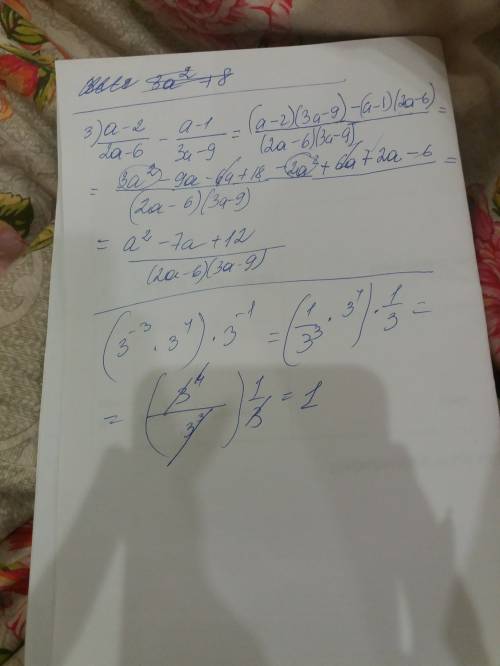 3a² + 8
3) (a-2)/(2a-6) - (a-1)/(3a-9) = ((a-2)(3a-9) - (a-1)(2a-6))/((2a-6)(3a-9)) =
= (3a² - 9a - 6a + 18 - 2a² + 6a + 2a - 6)/((2a-6)(3a-9)) =
= (a² - 7a + 12)/((2a-6)(3a-9))
(3⁻³ · 3⁴) · 3⁻¹ = (1/3³ · 3⁴) · 1/3 =
= (3⁴/3³) 1/3 = 1